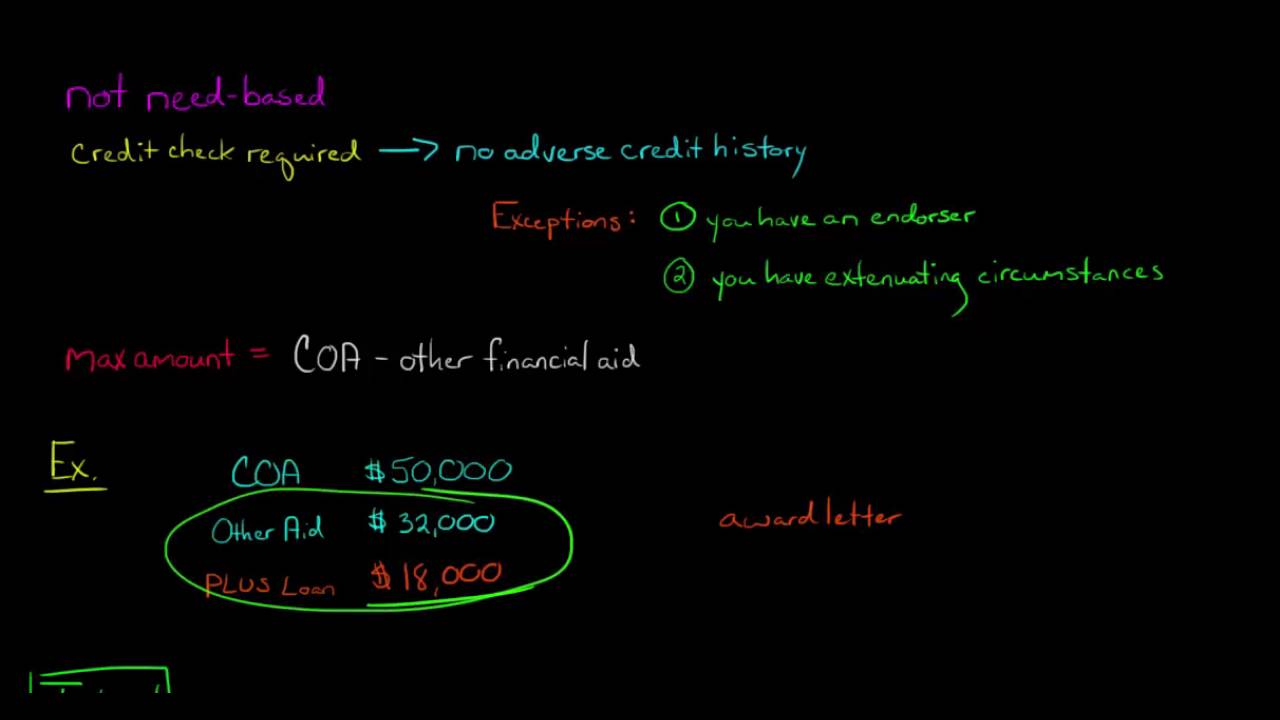 not need-based
credit check required → no adverse credit history
Exceptions: ① you have an endorser
② you have extenuating circumstances
Max amount = COA - other financial aid
Ex.
COA $50,000
Other Aid $32,000
PLUS Loan $18,000
award letter